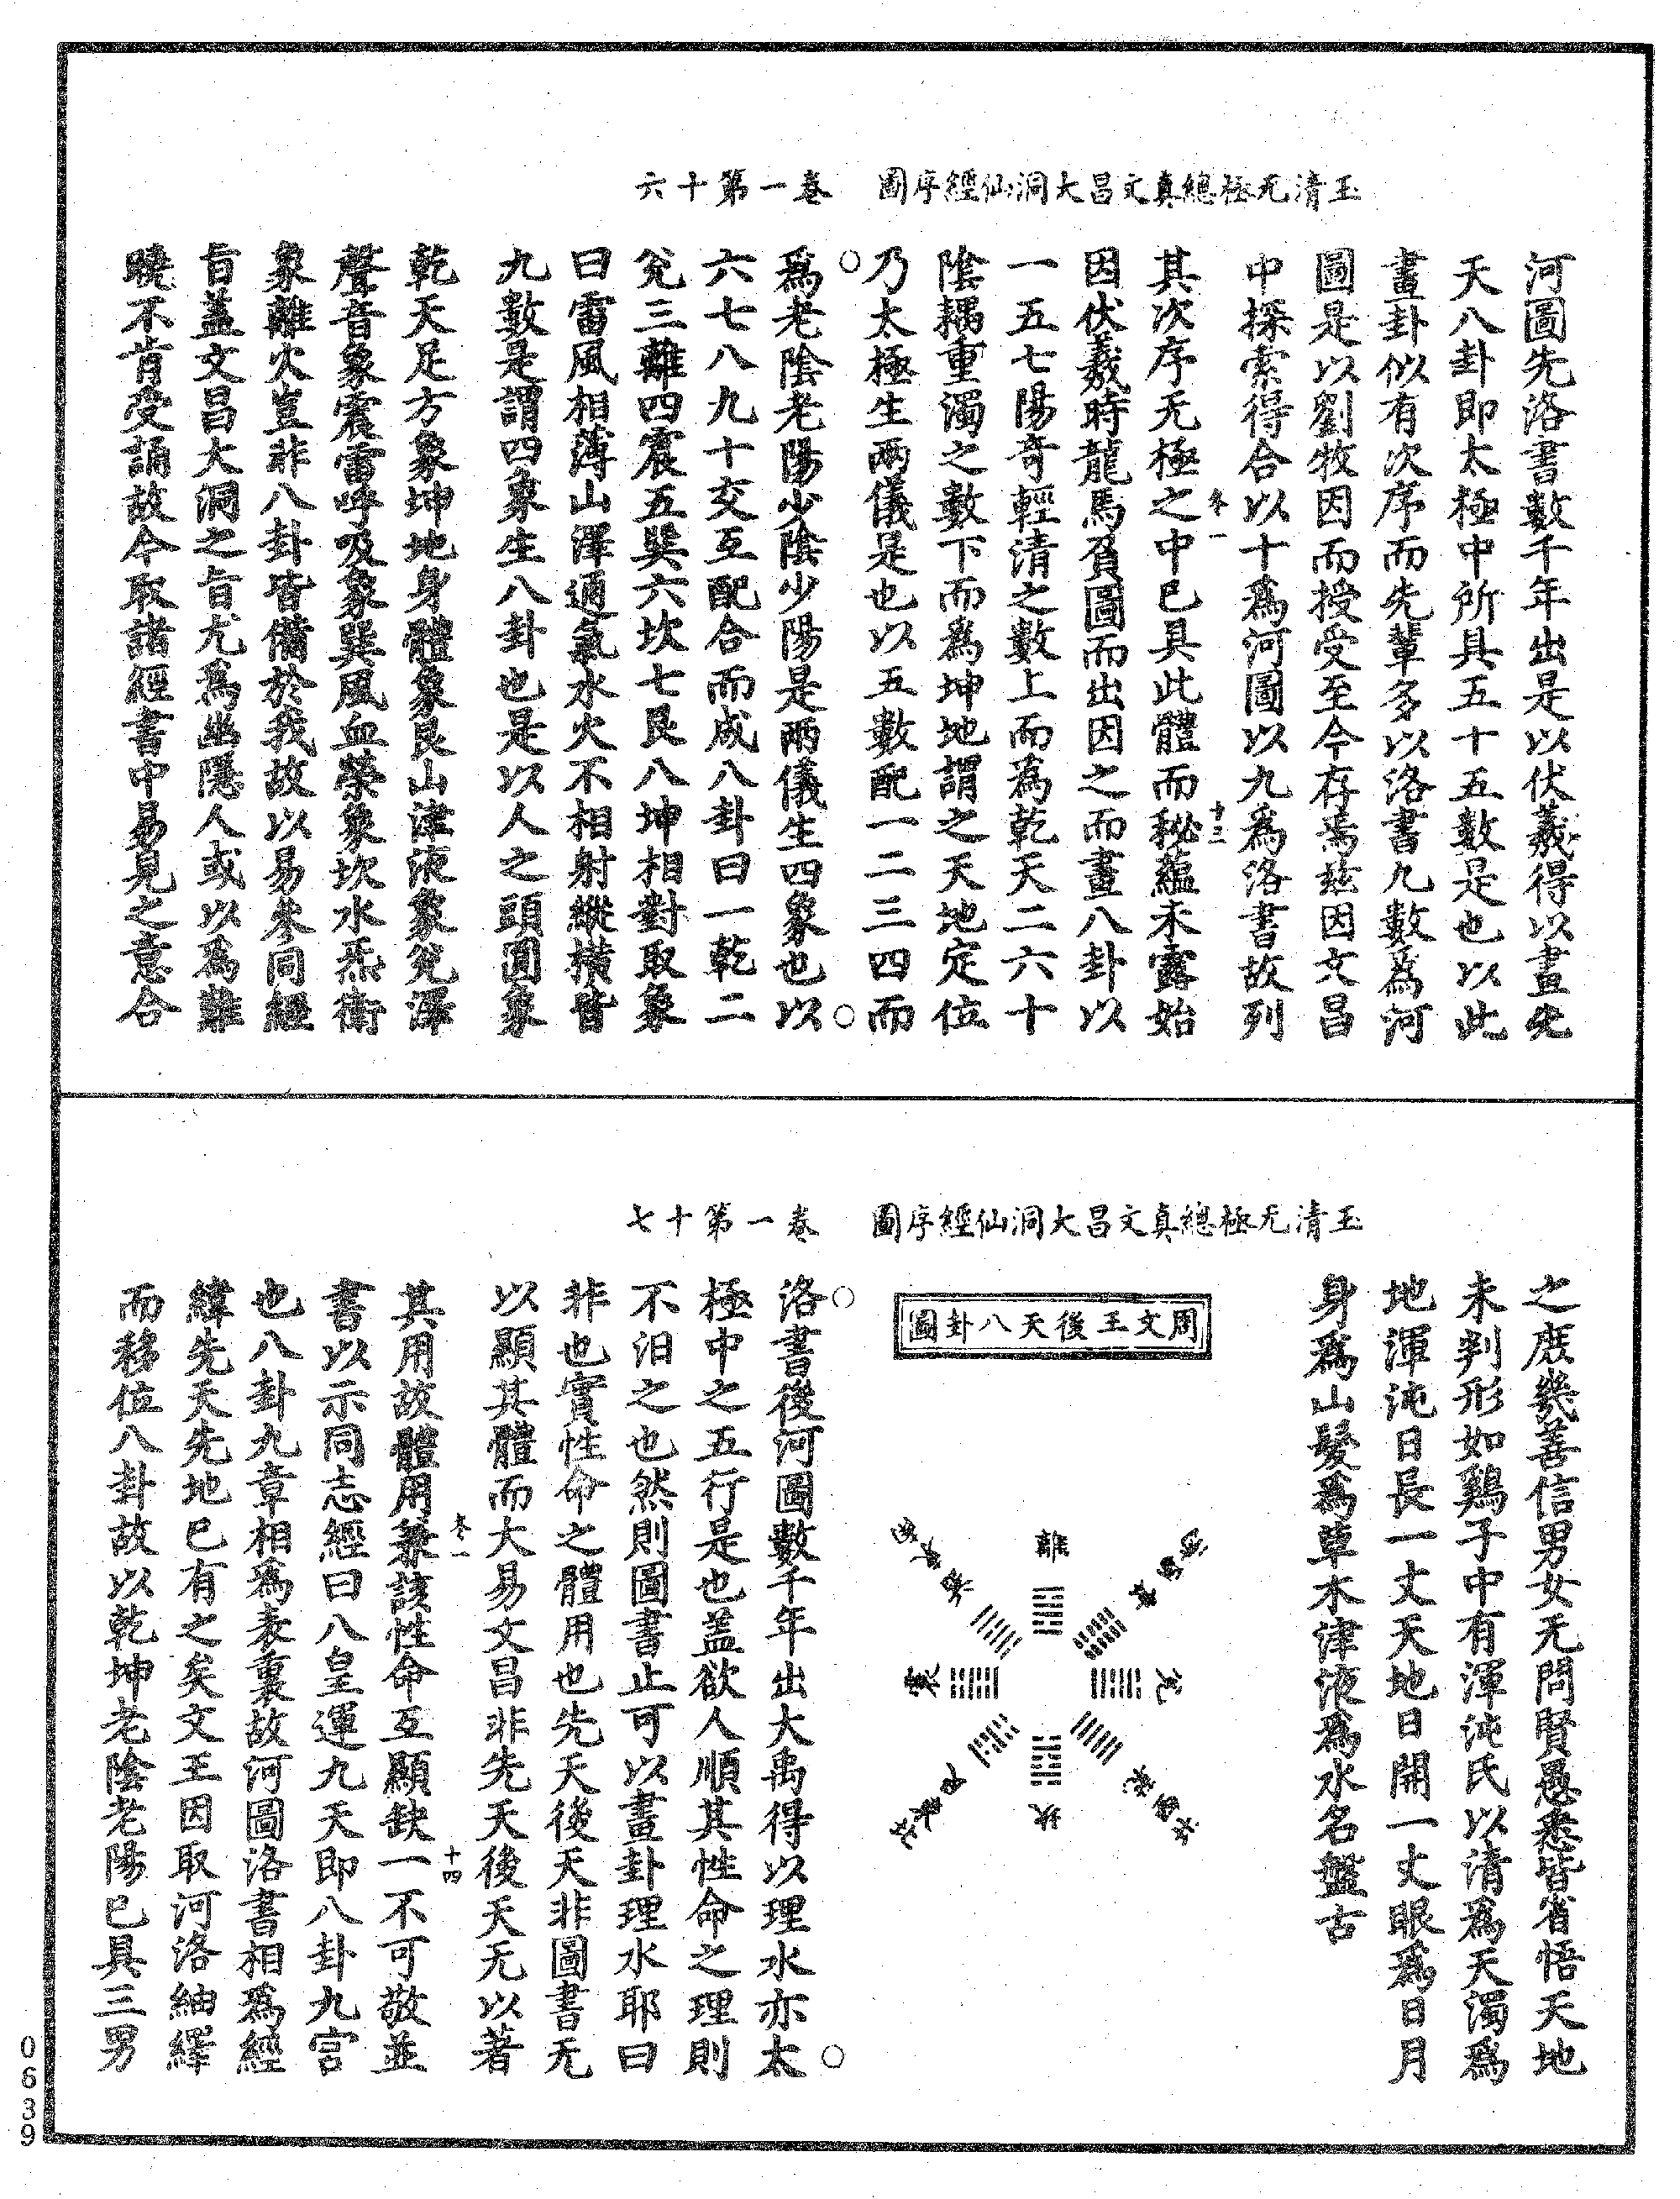 玉清无極總真文昌大洞仙經序圖　卷一第十六
河圖先洛書數千年出是以伏羲得以畫先
天八卦即太極中所具五十五數是也以此
畫卦似有次序而先輩多以洛書九數爲河
圖是以劉牧因而授受至今存焉玆因文昌
中探索得合以十爲河圖以九爲洛書故列
冬一
十三
其次序无極之中已具此體而秘蘊未露始
因伏羲時龍馬負圖而出因之而畫八卦以
一五七陽奇輕清之數上而為乾天二六十
陰耦重濁之數下而爲坤地謂之天地定位
乃太極生兩儀是也以五數配一二三四而
爲老陰老陽少陰少陽是兩儀生四象也以
六七八九十交互配合而成八卦曰一乾二
兌三離四震五巽六坎七艮八坤相對取象
曰雷風相薄山澤通氣水火不相射縱橫皆
九數是謂四象生八卦也是以人之頭圓象
乾天足方象坤地身體象艮山津液象兌澤
聲音象震雷呼吸象巽風血榮象坎水炁衛
象離火豈非八卦皆備於我故以易參同經
旨蓋文昌大洞之旨尤爲幽隱人或以爲難
曉不肯受誦故今取諸經書中易見之意合
玉清无極總真文昌大洞仙經序圖　卷一第十七
之庶幾善信男女无問賢愚悉皆省悟天地
未判形如鷄子中有渾沌氏以清爲天濁爲
地渾沌日長一丈天地日開一丈眼爲日月
身爲山髮爲草木津液爲水名盤古
周文王後天八卦圖
離
兌
坎
震
洛書後河圖數千年出大禹得以理水亦太
極中之五行是也蓋欲人順其性命之理則
不汩之也然則圖書止可以畫卦理水耶曰
非也實性命之體用也先天後天非圖書无
以顯其體而大易文昌非先天後天无以著
其用故體用兼該性命互顯缺一不可敬並
冬一
十四
書以示同志經曰八皇運九天即八卦九宮
也八卦九章相爲表裏故河圖洛書相爲經
緯先天先地已有之矣文王因取河洛紬繹
而移位八卦故以乾坤老陰老陽已具三男
0639